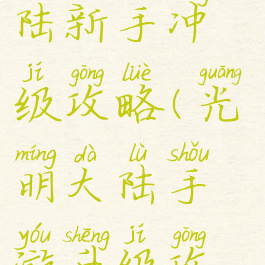 陆新手冲
jí gōng lüè guāng
级攻略(光
míng dà lù shǒu
明大陆手
yóu shēng jí gōng
游升级攻